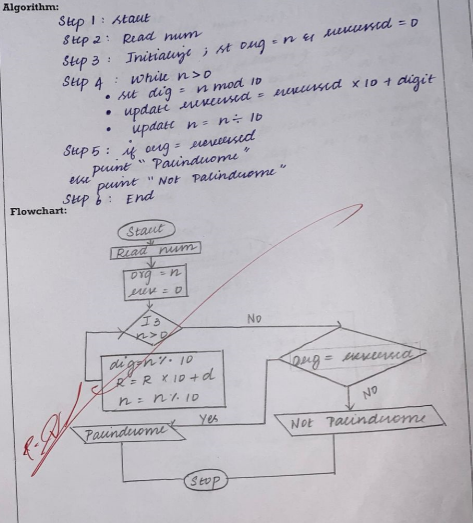 Algorithm:
Step 1 : Start
Step 2 : Read num
Step 3 : Initialize ; st org = n & reversed = 0
Step 4 : While n>0
• set dig = n mod 10
• update reversed = reversed × 10 + digit
• update n = n ÷ 10
Step 5 : if org = reversed
print "Palindrome"
else print "Not Palindrome"
Step 6 : End
Flowchart:
Start
Read num
org = n
rev = 0
Is
n>0
No
dig=n % 10
R = R × 10 + d
n = n % 10
org = reversed
No
Yes
Palindrome
Not Palindrome
Stop